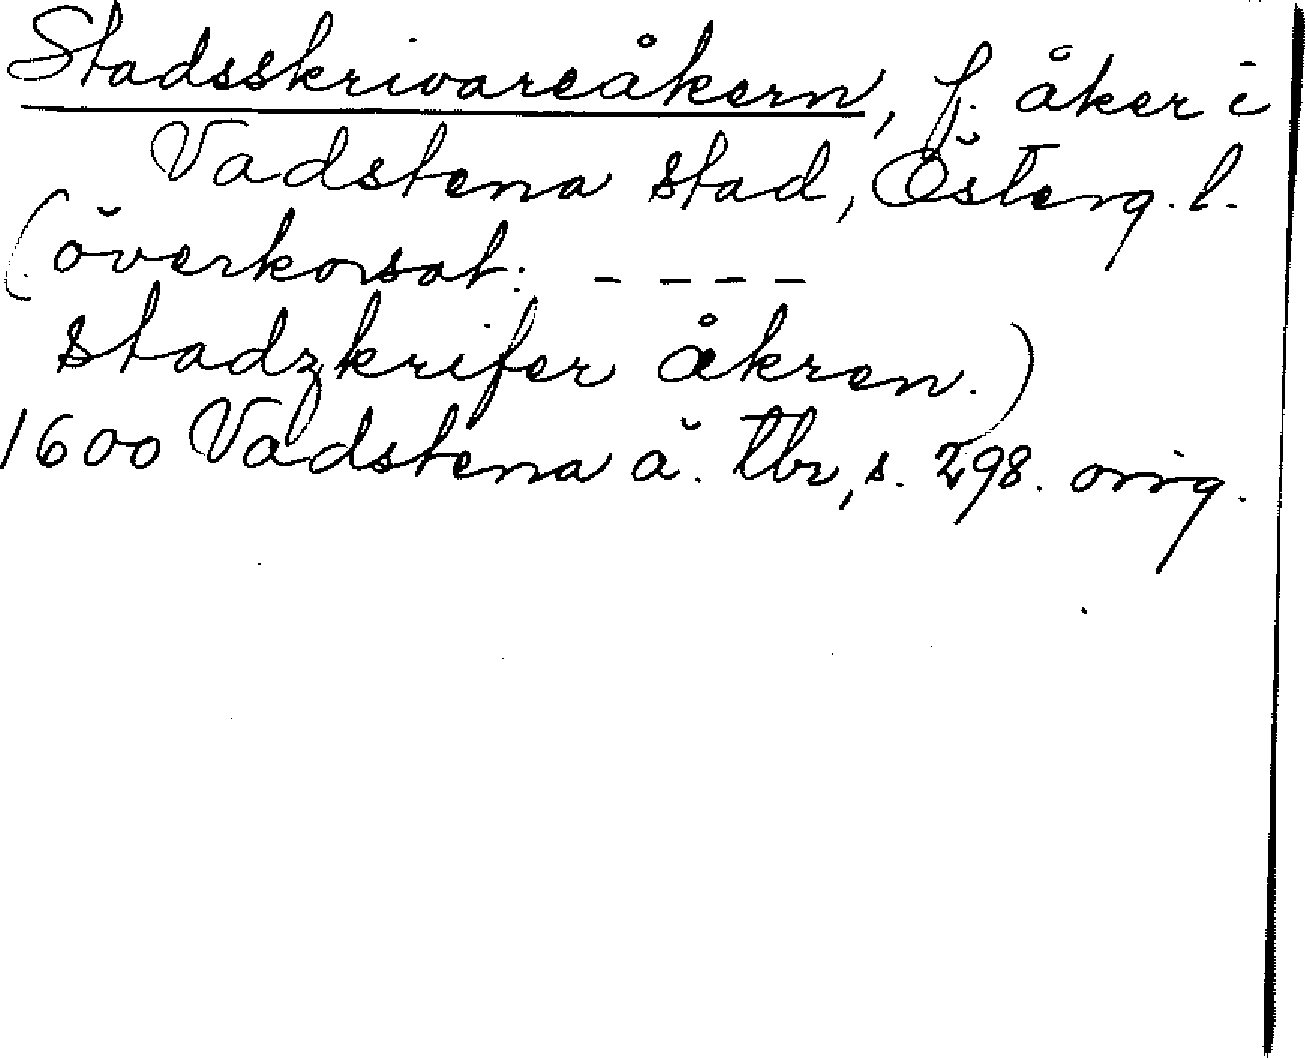 Stadsskrivareåkern, f. åker i
Vadstena stad, Österg. l.
(överkorsat: – – – –
stadzkrifer åkren.)
1600 Vadstena ä. tbr, s. 298. orig.